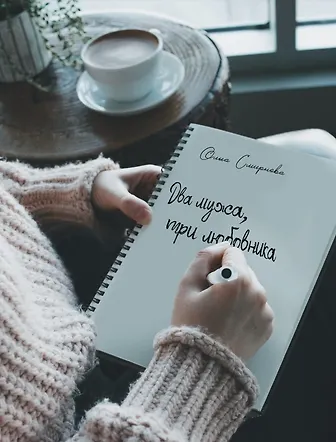 Олма Смирнова
Два мужа,
три любовника